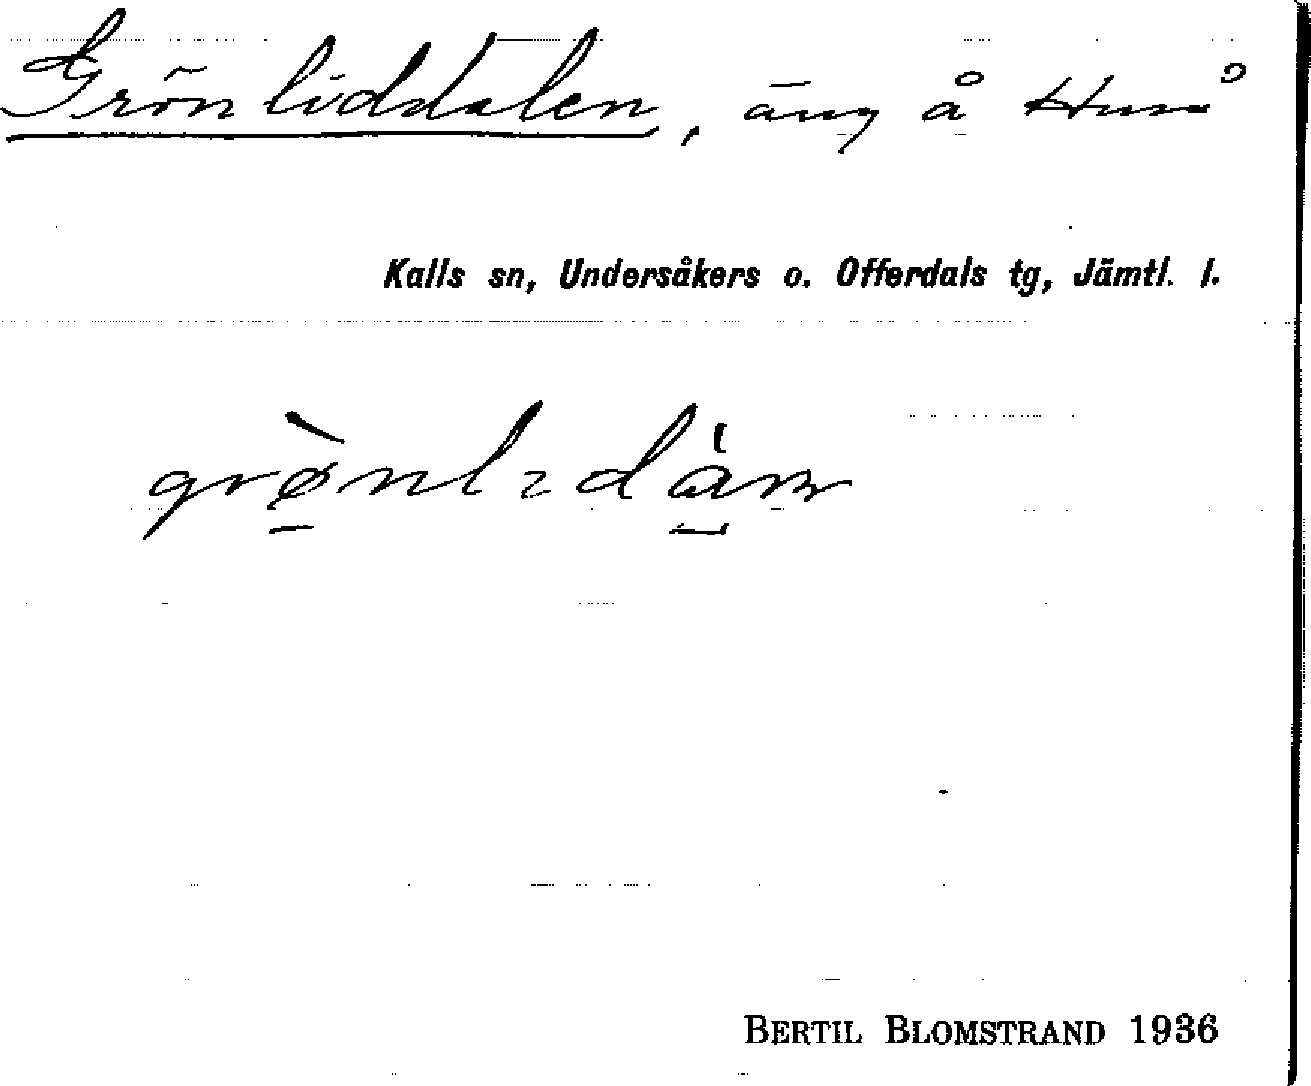 Grönliddalen, äng å Huså
Kalls sn, Undersåkers o. Offerdals tg, Jämtl. l.
BERTIL BLOMSTRAND 1936